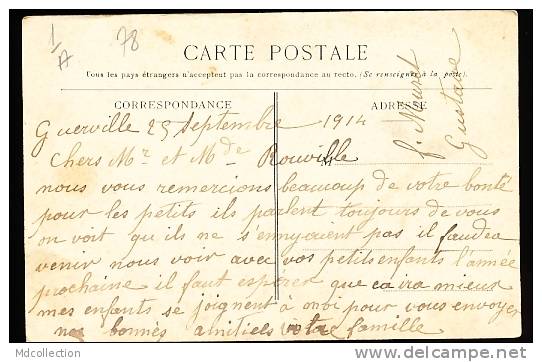 1/A
78
CARTE POSTALE
Tous les pays étrangers n'acceptent pas la correspondance au recto. (Se renseigner à la poste).
CORRESPONDANCE
ADRESSE
Guerville 25 Septembre 1914
Chers Mr et Mde Rouville
M
nous vous remercions beaucoup de votre bonté
pour les petits ils parlent toujours de vous
on voit qu ils ne s'ennyaient pas il faudra
venir nous voir avec vos petits enfants l'année
prochaine il faut espérer que ca ira mieux
mes enfants se joignent à moi pour vous envoyer
nos bonnes amitiels votre famille
Gustave
Mdcollection
www.delcampe.net